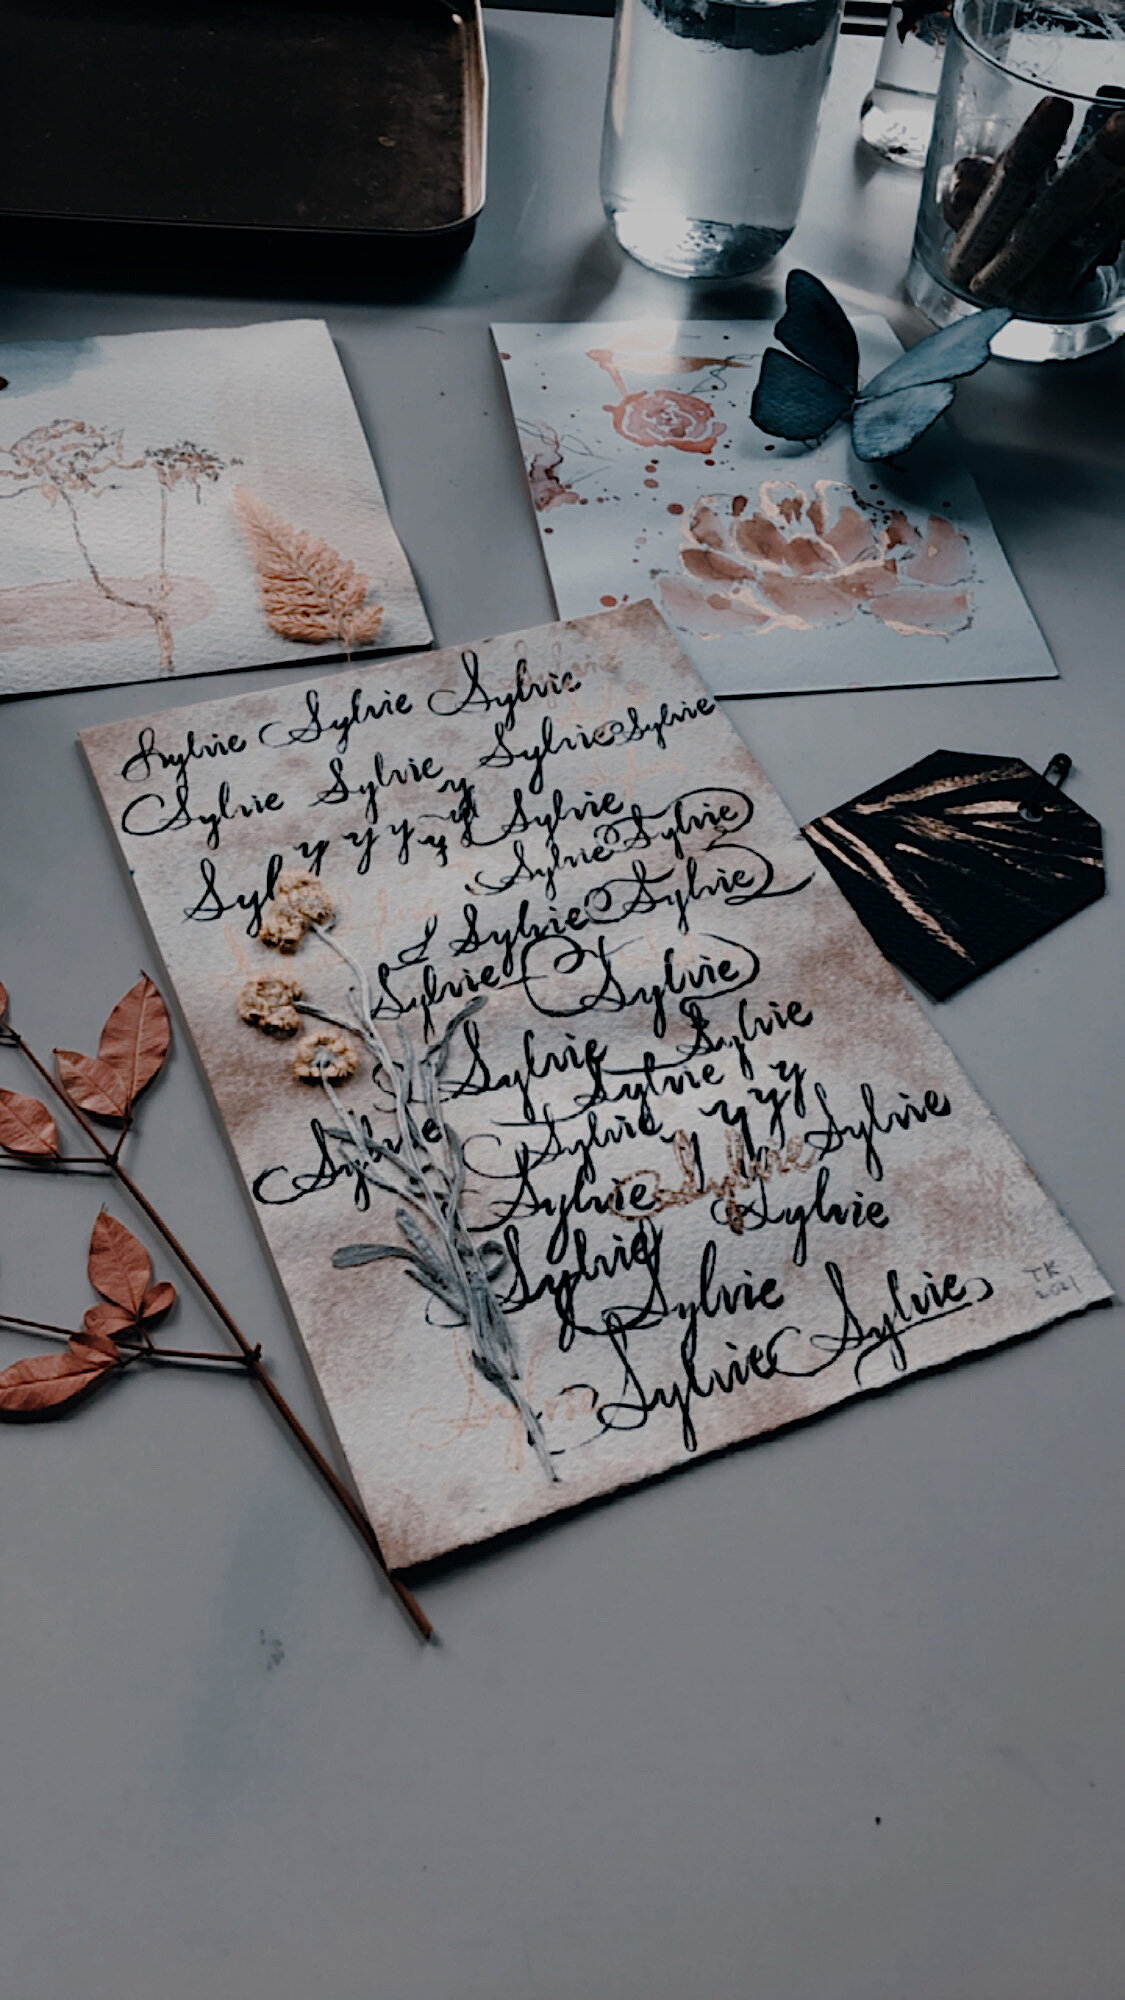 Sylvie Sylvie Sylvie
Sylvie Sylvie Sylvie Sylvie
Syl y y y y y y Sylvie
Sylvie Sylvie
S Sylvie Sylvie
Sylvie Sylvie
Sylvie Sylvie
Sylvie
Sylvie Sylvie y y y Sylvie
Sylvie Sylvie Sylvie
Sylvie Sylvie
Sylvie Sylvie
Sylvie
TK
2021